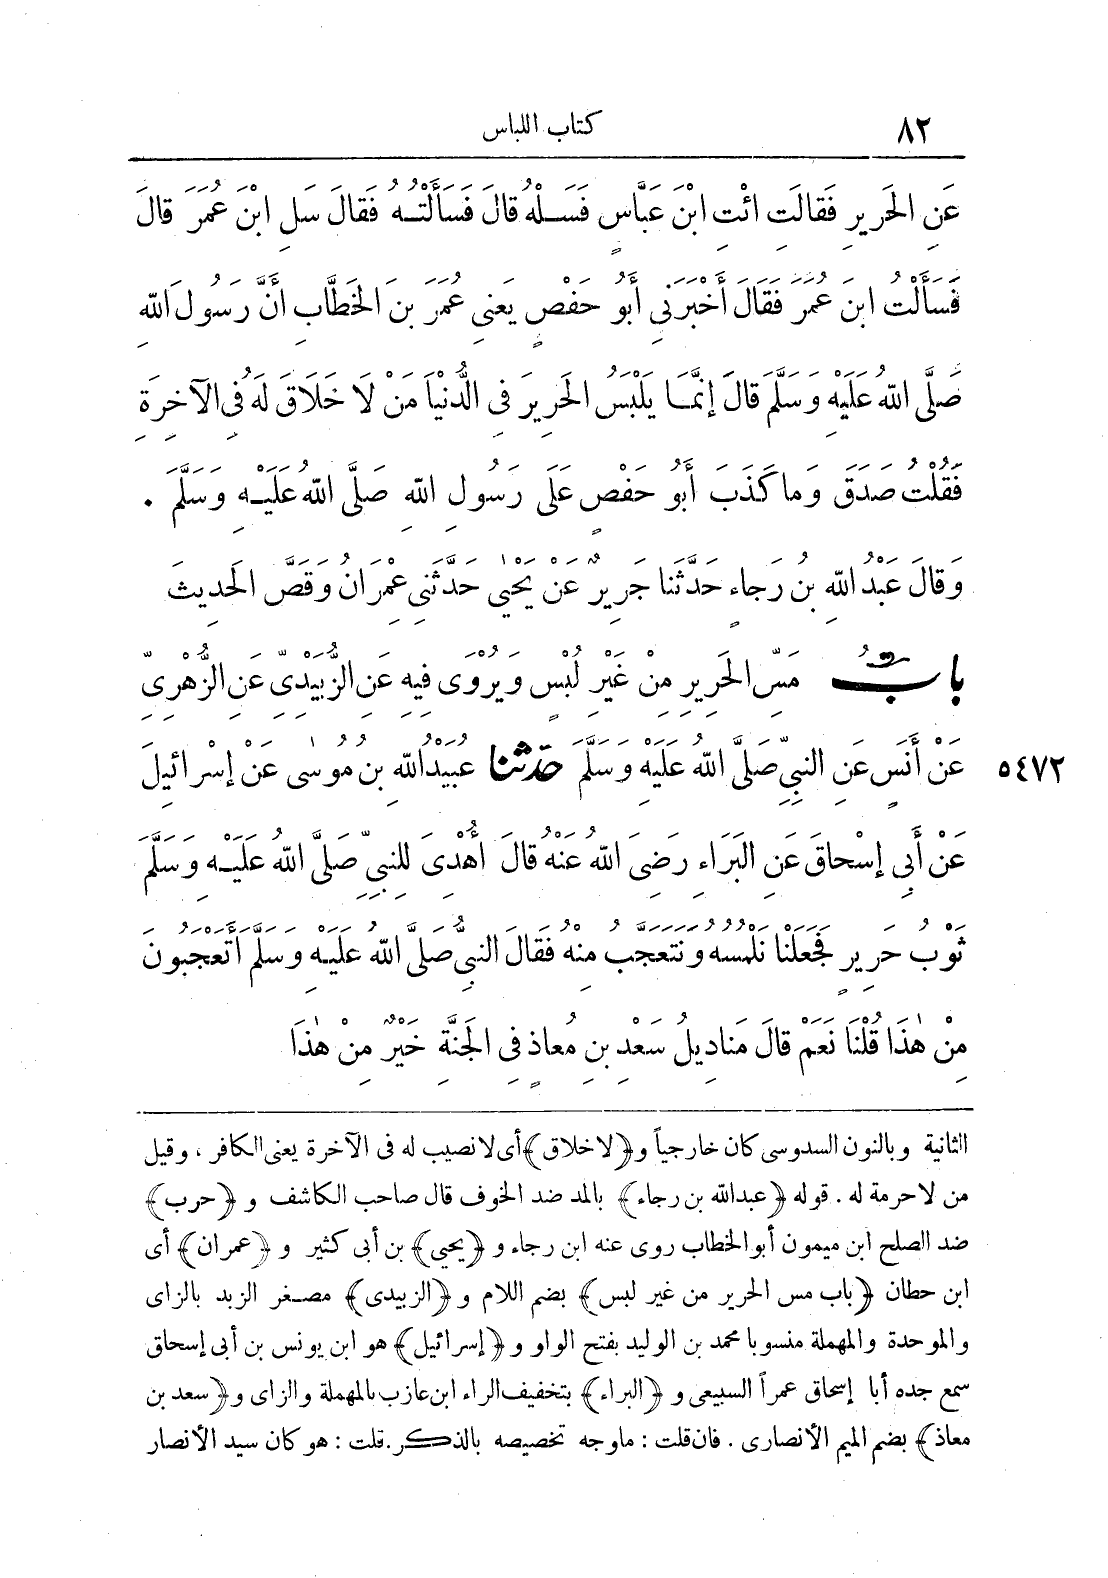 ٨٢ كتاب اللباس
عَنِ الْحَرِيرِ فَقَالَتِ ائْتِ ابْنَ عَبَّاسٍ فَسَلْهُ قَالَ فَسَأَلْتُهُ فَقَالَ سَلِ ابْنَ عُمَرَ قَالَ
فَسَأَلْتُ ابْنَ عُمَرَ فَقَالَ أَخْبَرَنِي أَبُو حَفْصٍ يَعْنِي عُمَرَ بْنَ الْخَطَّابِ أَنَّ رَسُولَ اللهِ
صَلَّى اللهُ عَلَيْهِ وَسَلَّمَ قَالَ إِنَّمَا يَلْبَسُ الْحَرِيرَ فِي الدُّنْيَا مَنْ لَا خَلَاقَ لَهُ فِي الْآخِرَةِ
فَقُلْتُ صَدَقَ وَمَا كَذَبَ أَبُو حَفْصٍ عَلَى رَسُولِ اللهِ صَلَّى اللهُ عَلَيْهِ وَسَلَّمَ .
وَقَالَ عَبْدُ اللهِ بْنُ رَجَاءٍ حَدَّثَنَا جَرِيرٌ عَنْ يَحْيَى حَدَّثَنِي عِمْرَانُ وَقَصَّ الْحَدِيثَ
بَابُ مَسِّ الْحَرِيرِ مِنْ غَيْرِ لُبْسٍ وَيُرْوَى فِيهِ عَنِ الزُّبَيْدِيِّ عَنِ الزُّهْرِيِّ
٥٤٧٢ عَنْ أَنَسٍ عَنِ النَّبِيِّ صَلَّى اللهُ عَلَيْهِ وَسَلَّمَ حَدَّثَنَا عُبَيْدُ اللهِ بْنُ مُوسَى عَنْ إِسْرَائِيلَ
عَنْ أَبِي إِسْحَاقَ عَنِ الْبَرَاءِ رَضِيَ اللهُ عَنْهُ قَالَ أُهْدِيَ لِلنَّبِيِّ صَلَّى اللهُ عَلَيْهِ وَسَلَّمَ
ثَوْبُ حَرِيرٍ فَجَعَلْنَا نَلْمُسُهُ وَنَتَعَجَّبُ مِنْهُ فَقَالَ النَّبِيُّ صَلَّى اللهُ عَلَيْهِ وَسَلَّمَ أَتَعْجَبُونَ
مِنْ هٰذَا قُلْنَا نَعَمْ قَالَ مَنَادِيلُ سَعْدِ بْنِ مُعَاذٍ فِي الْجَنَّةِ خَيْرٌ مِنْ هٰذَا
الثانية وبالنون السدوسى كان خارجياً و﴿لاخلاق﴾ أى لا نصيب له فى الآخرة يعنى الكافر، وقيل
من لا حرمة له. قوله ﴿عبدالله بن رجاء﴾ بالمد ضد الخوف قال صاحب الكاشف و﴿حرب﴾
ضد الصلح ابن ميمون أبو الخطاب روى عنه ابن رجاء و﴿يحيى﴾ بن أبى كثير و﴿عمران﴾ أى
ابن حطان ﴿باب مس الحرير من غير لبس﴾ بضم اللام و﴿الزبيدى﴾ مصغر الزبد بالزاى
والموحدة والمهملة منسوبا محمد بن الوليد بفتح الواو و﴿إسرائيل﴾ هو ابن يونس بن أبى إسحاق
سمع جده أبا إسحاق عمراً السبيعى و﴿البراء﴾ بتخفيف الراء ابن عازب بالمهملة والزاى و﴿سعد بن
معاذ﴾ بضم الميم الأنصارى. فان قلت: ما وجه تخصيصه بالذكر. قلت: هو كان سيد الأنصار